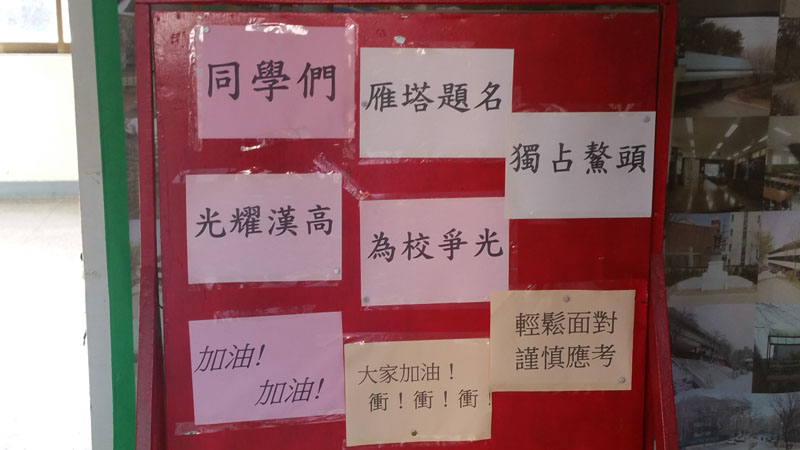 同學們
雁塔題名
獨占鰲頭
光耀漢高
為校爭光
輕鬆面對
謹慎應考
加油!
加油!
大家加油!
衝!衝!衝!